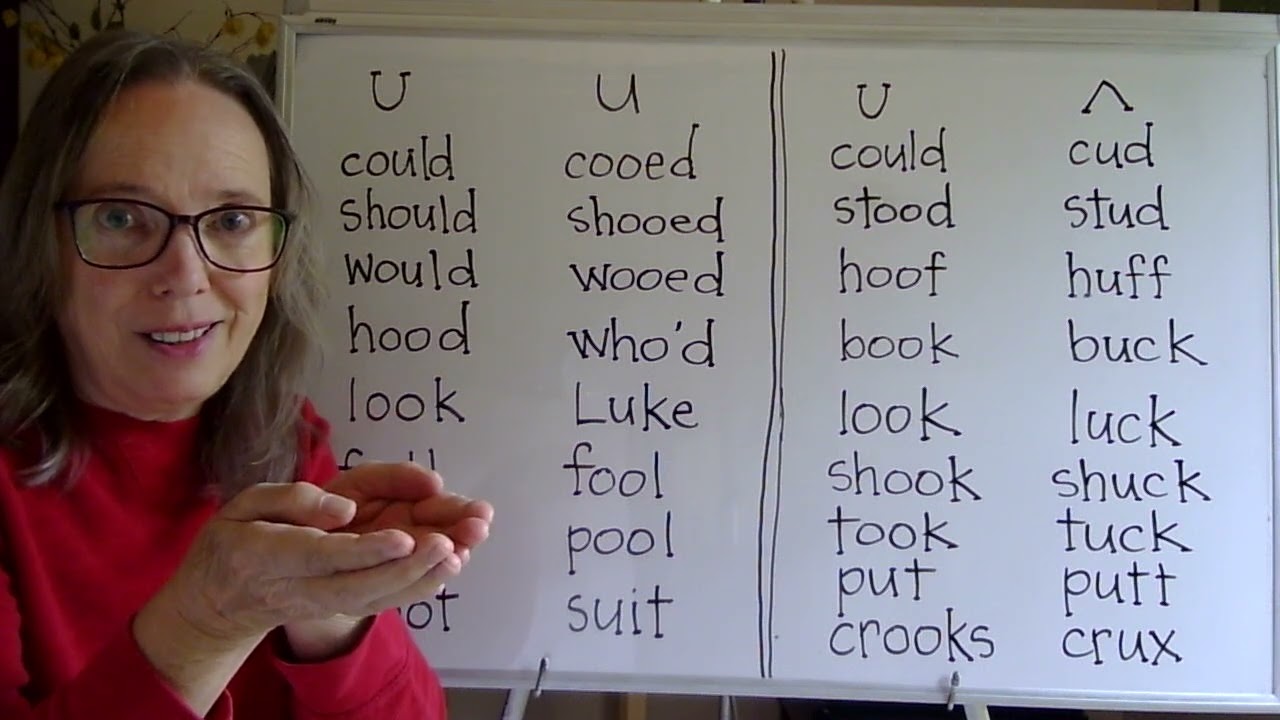 ʊ u ʊ ʌ
could cooed could cud
should shooed stood stud
would wooed hoof huff
hood who'd book buck
look Luke look luck
fool shook shuck
pool took tuck
put putt
suit crooks crux